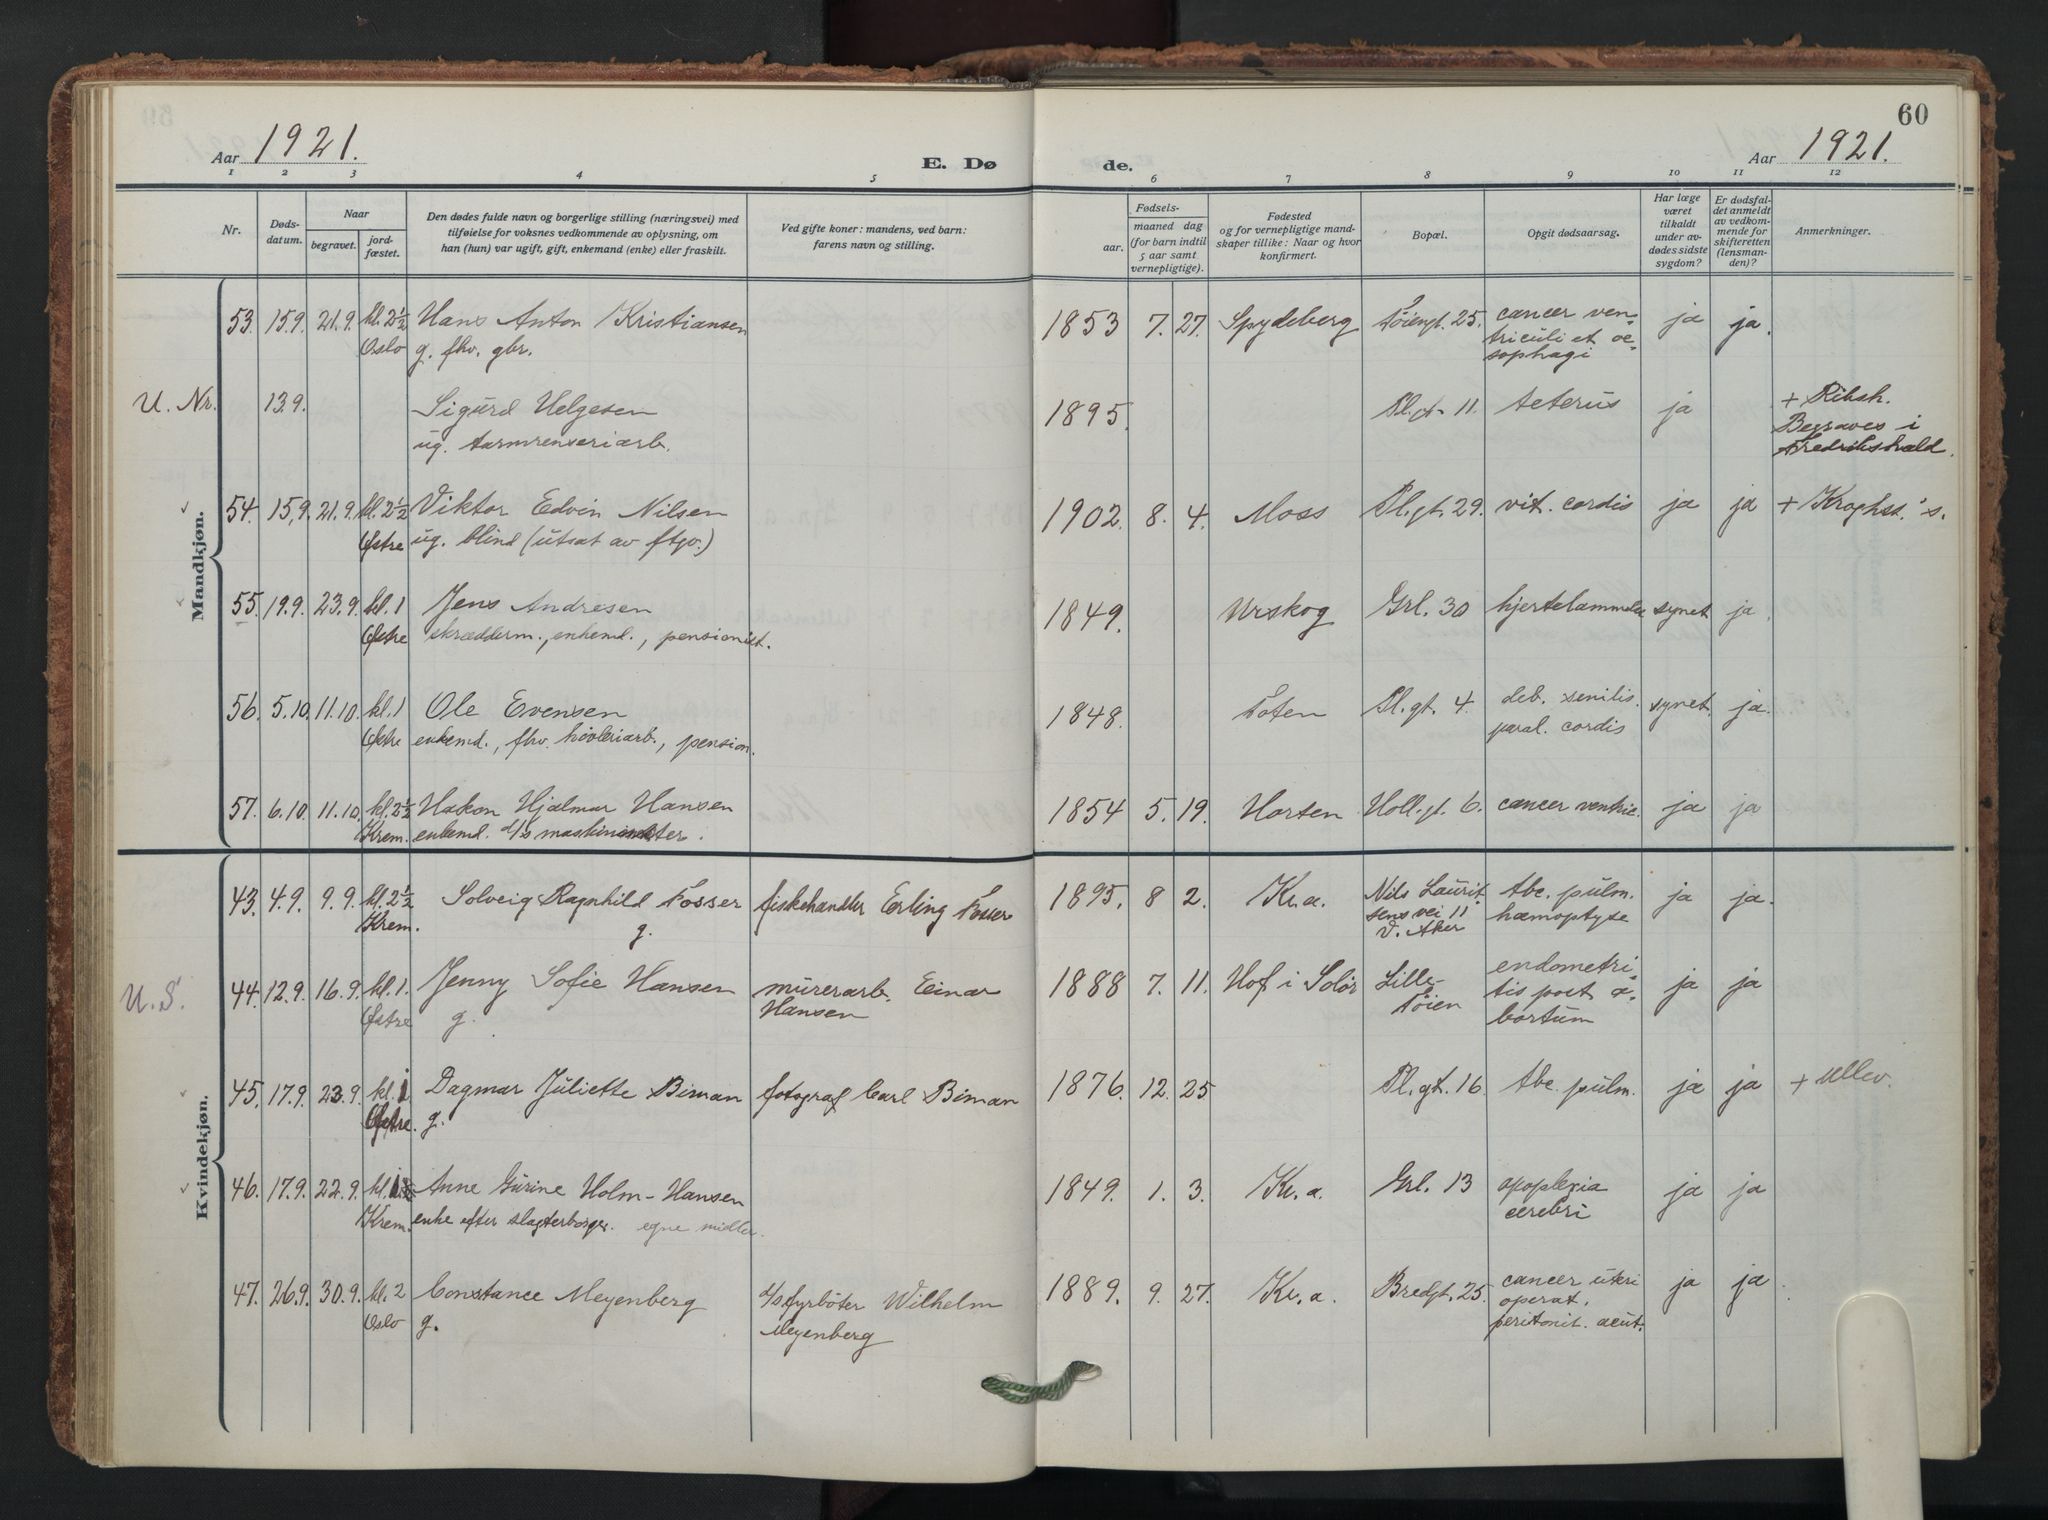 60
Aar 1921.
E. Dø de.
Aar 1921.
1 2 3 4 5 6 7 8 9 10 11 12
Nr.
Døds-
datum.
Naar
begravet.
jord-
fæstet.
Den dødes fulde navn og borgerlige stilling (næringsvei) med
tilføielse for voksnes vedkommende av oplysning, om
han (hun) var ugift, gift, enkemand (enke) eller fraskilt.
Ved gifte koner: mandens, ved barn:
farens navn og stilling.
Fødsels-
aar.
maaned dag
(for barn indtil
5 aar samt
vernepligtige).
Fødested
og for vernepligtige mand-
skaper tillike: Naar og hvor
konfirmert.
Bopæl.
Opgit dødsaarsag.
Har læge
været
tilkaldt
under av-
dødes sidste
sygdom?
Er dødsfal-
det anmeldt
av vedkom-
mende for
skifteretten
(lensman-
den)?
Anmerkninger.
Mandkjøn.
53. 15.9. 21.9. kl. 2½ Hans Anton Kristiansen 1853 7. 27. Spydeberg Töiengt. 25. cancer ven- ja ja.
Oslo g. fhv. gbr. triculi et oe-
sophagi
U. Nr. 13.9. Sigurd Helgesen 1895. Pl.gt. 11. icterus ja + Riksh.
ug. tarmrenseriarb. Begraves i
Fredrikshald.
54. 15.9. 21.9. kl. 2½ Viktor Edvin Nilsen 1902. 8. 4. Moss Pl.gt. 29. vit. cordis ja ja + Kroghss. 's.
Østre ug. blind (utsat av ftgv.)
55. 19.9. 23.9. kl. 1 Jens Andresen 1849. Urskog Grl. 30 hjertelammelse synet ja.
Østre skrædderm., enkemd., pensionist.
56. 5.10. 11.10. kl. 1 Ole Evensen 1848. Toten Pl.gt. 4. deb. senilis. synet. ja.
Østre enkemd., fhv. høvleriarb., pension. paral. cordis
57. 6.10. 11.10. kl. 2½ Hakon Hjalmar Hansen 1854 5. 19. Horten Holl.gt. 6. cancer ventric. ja ja
Krem. enkemd. d/s maskinister.
Kvindekjøn.
43. 4.9. 9.9. kl. 2½ Solveig Ragnhild Fosser fiskehandler Erling Fosser 1895. 8 2. Kr.a. Nils Laurit- tbc. pulm. ja ja.
Krem. g. sens vei 11 hæmoptyse
V. Aker
U. S. 44. 12.9. 16.9. kl. 1. Jenny Sofie Hansen murerarb. Einar 1888 7. 11. Hof i Solör Lille- endometri- ja ja
Østre g. Hansen Töien tis post a-
bortum
45. 17.9. 23.9. kl. 1 Dagmar Juliette Biman fotograf Carl Biman 1876. 12. 25 Pl.gt. 16 tbc. pulm. ja ja + Ullev.
Østre. g.
46. 17.9. 22.9. kl. Anne Gurine Holm-Hansen 1849. 1. 3. Kr.a. Grl. 13 apoplexia ja ja
Krem. enke efter slagterborger. egne midler. cerebri
47. 26.9. 30.9. kl. 2 Constance Meyenberg d/s fyrböter Wilhelm 1889. 9. 27. Kr.a. Bredgt. 25. cancer uteri ja ja.
Oslo g. Meyenberg operat.
peritonit. acut.